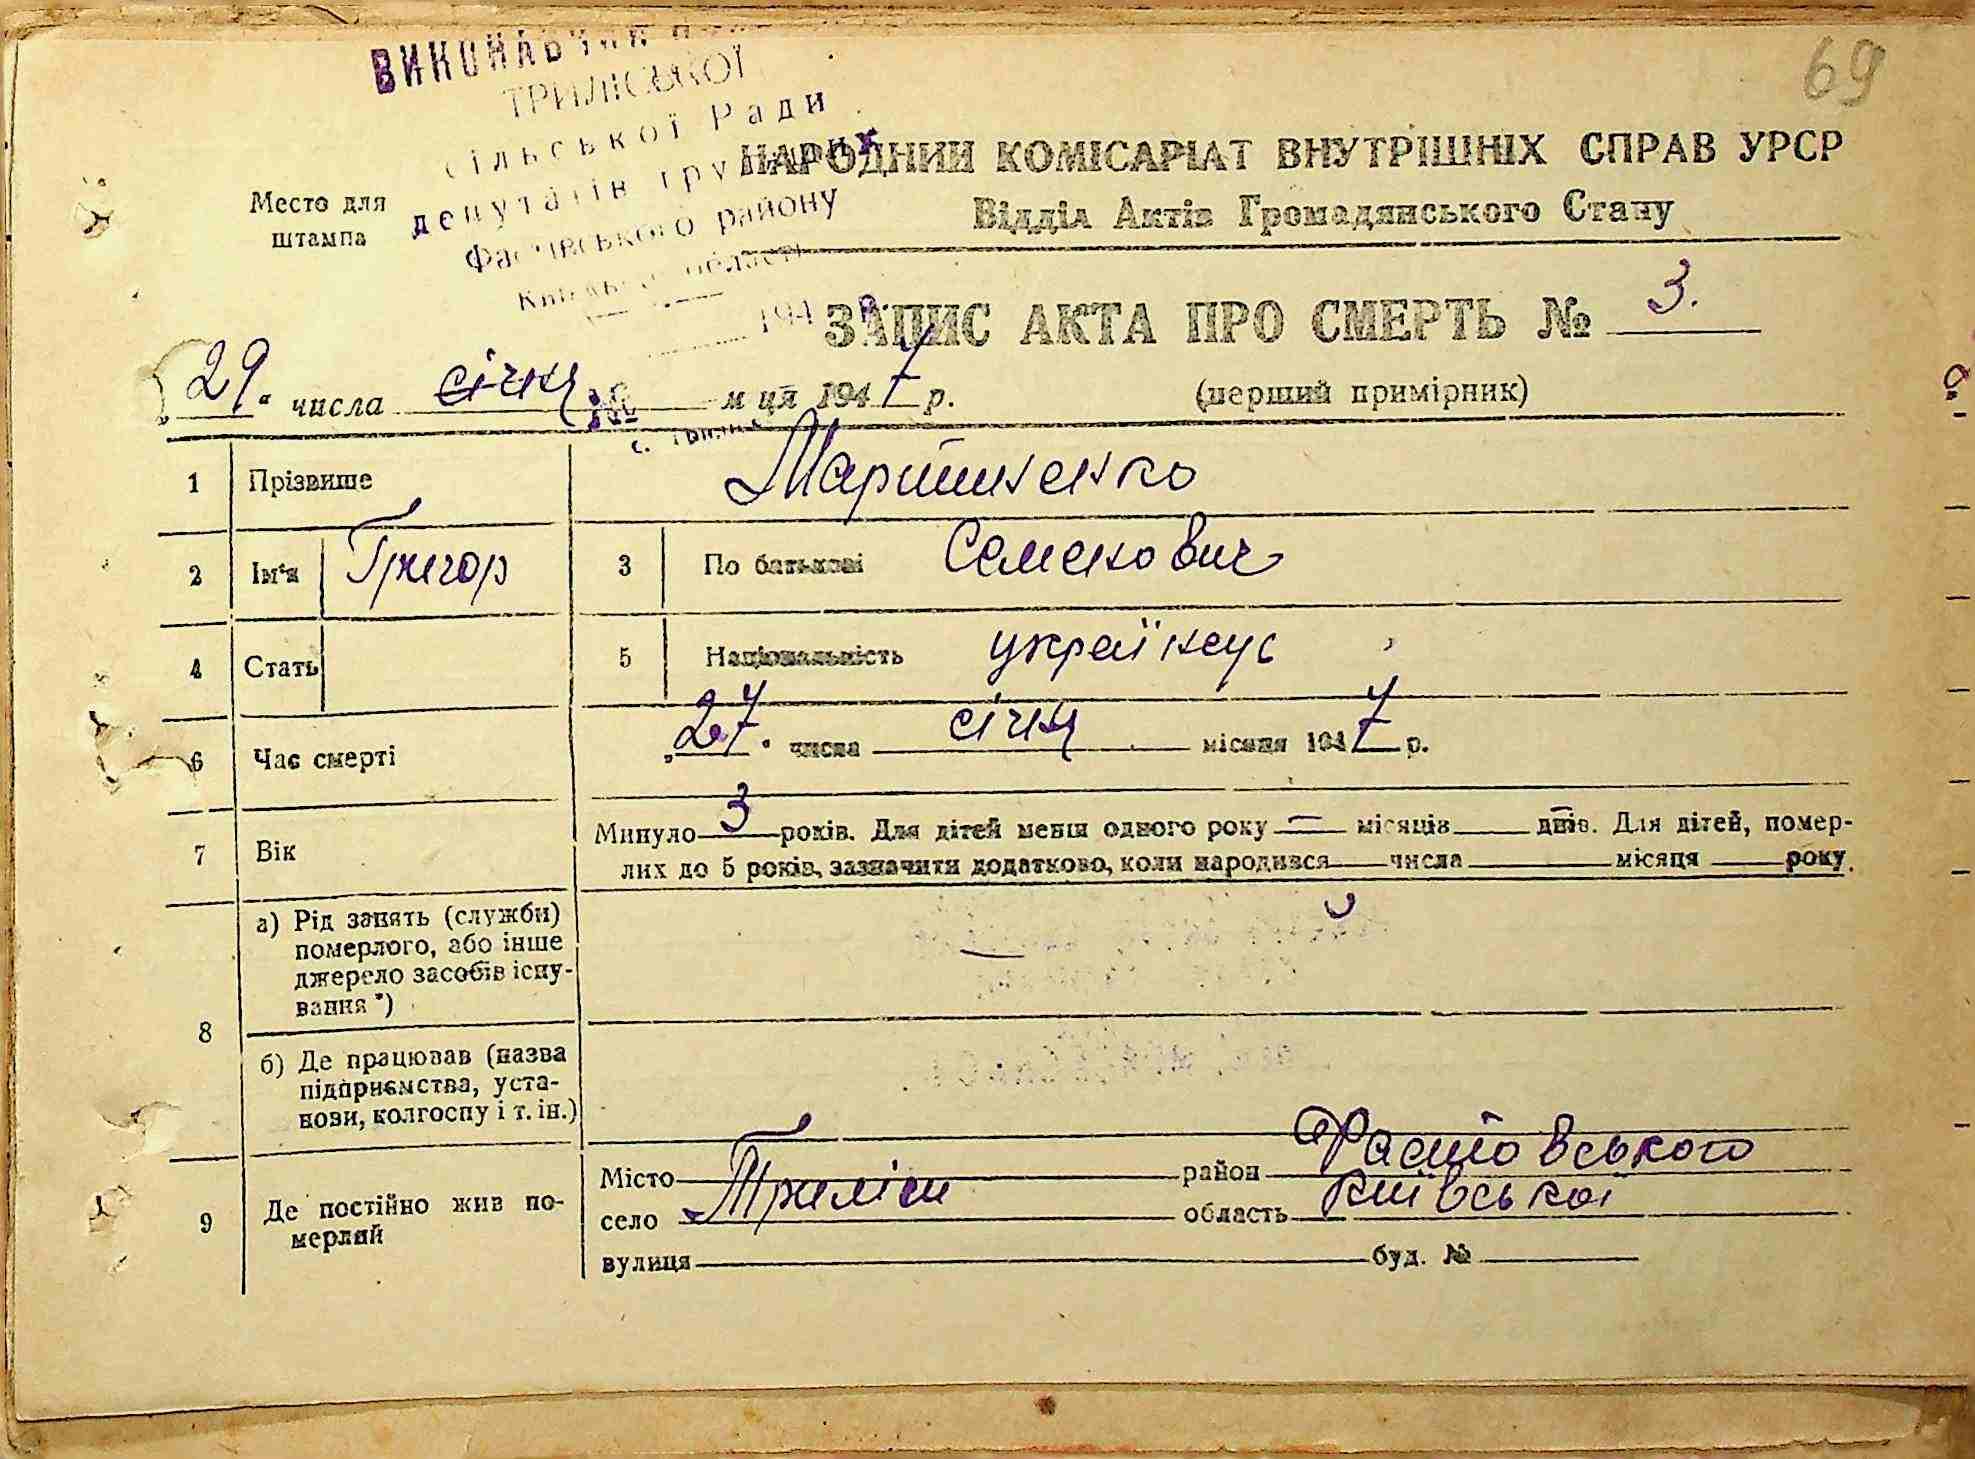 69
ТРИЛІСЬКОЇ
сільської Ради
депутатів трудящих
Фастівського району
області
194
Место для
штампа
НАРОДНИЙ КОМІСАРІАТ ВНУТРІШНІХ СПРАВ УРСР
Відділ Актів Громадянського Стану
ЗАПИС АКТА ПРО СМЕРТЬ № 3.
29 числа січня м ця 1947 р. (перший примірник)
1 Прізвище Мартиненко
2 Ім'я Григор 3 По батькові Семенович
4 Стать 5 Національність українець
6 Час смерті „27" числа січня місяця 1947 р.
7 Вік Минуло 3 років. Для дітей менш одного року — місяців — днів. Для дітей, помер-
лих до 5 років, зазначити додатково, коли народився числа місяця року
8 а) Рід занять (служби)
померлого, або інше
джерело засобів існу-
вання *)
—
б) Де працював (назва
підприємства, уста-
нови, колгоспу і т. ін.)
9 Де постійно жив по-
мерлий
Місто район Фастовського
село Триліси область Київської
вулиця буд. №